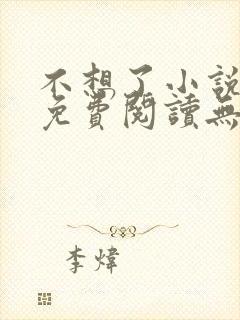 不想了小說
免費閱讀無
李煒